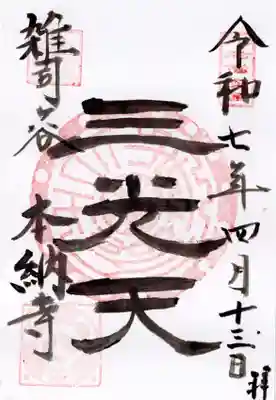 令和七年四月十三日
拝
三光天
雑司ヶ谷
本納寺